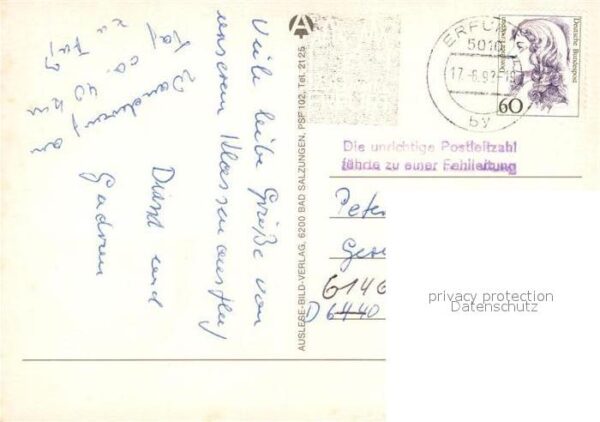 Viele liebe Grüße von
unserem Klassenausflug
Diana und
Gudrun
Wanderart an
ca. 40 km
zu Fuß
AUSLESE-BILD-VERLAG, 6200 BAD SALZUNGEN, PSF 102, Tel. 2125
ERFURT
5010
17.-6.92
by
Deutsche Bundespost
60
Die unrichtige Postleitzahl
führte zu einer Fehlleitung
Peter
6146
D 6440
privacy protection
Datenschutz